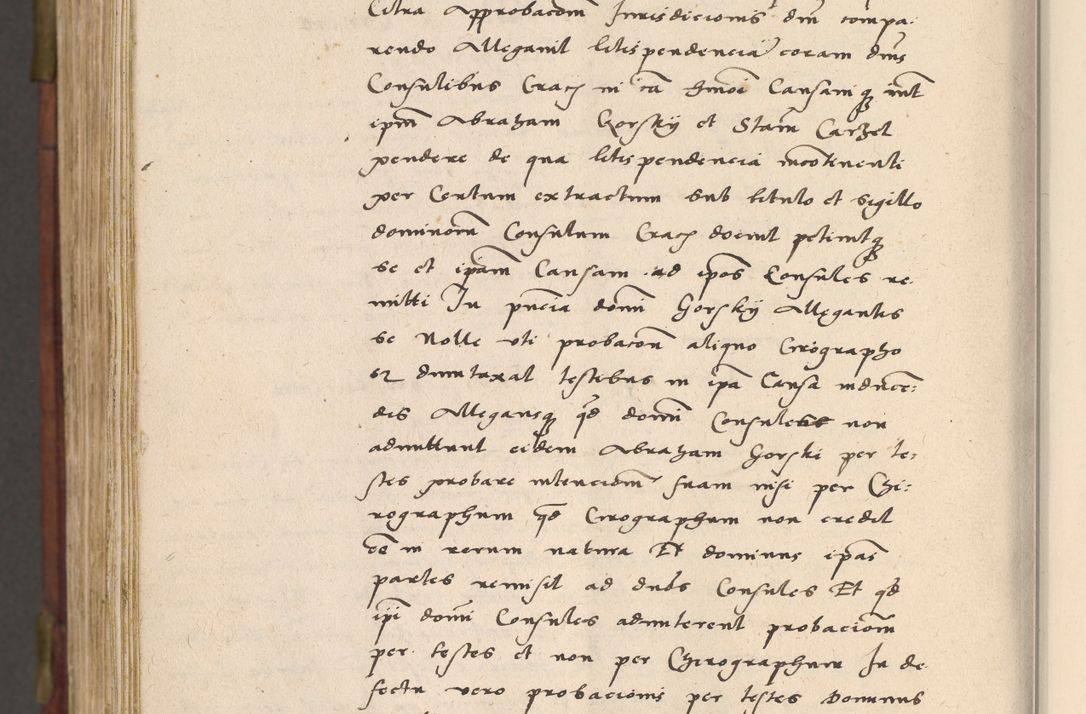 Citra Approbacom Jurisdicionis dm compa-
rendo Alleganit litispendencia coram dnis
Consulibus Cracɔ in ca hmoi Causamq int
ipm Abraham Gorsky et Stam Carzel
pendere de qua litispendencia incontinenti
per Certum extractum sub titulo et sigillo
dominorū Consulum Cracɔ docuit petiuitq
se et ipam Causam ad ipos Consules re-
mitti In pncia domi Gorsky Allegantis
se Nolle vti probacon aliquo Cirographo
sz dumtaxat testibus in ipa Causa inducen:
dis Allegansq qd domi Consules non
admittunt eidem Abraham Gorski per te:
stes probare intenciom suam nisi per Chi:
rographum qd Cirographum non credit
ee in rerum natura Et dominus ipas
partes remisit ad dnos Consules Et qd
ipi domi Consules admitterent probaciom
per testes et non per Chirographum In de-
fectu vero probacionis per testes Dominus